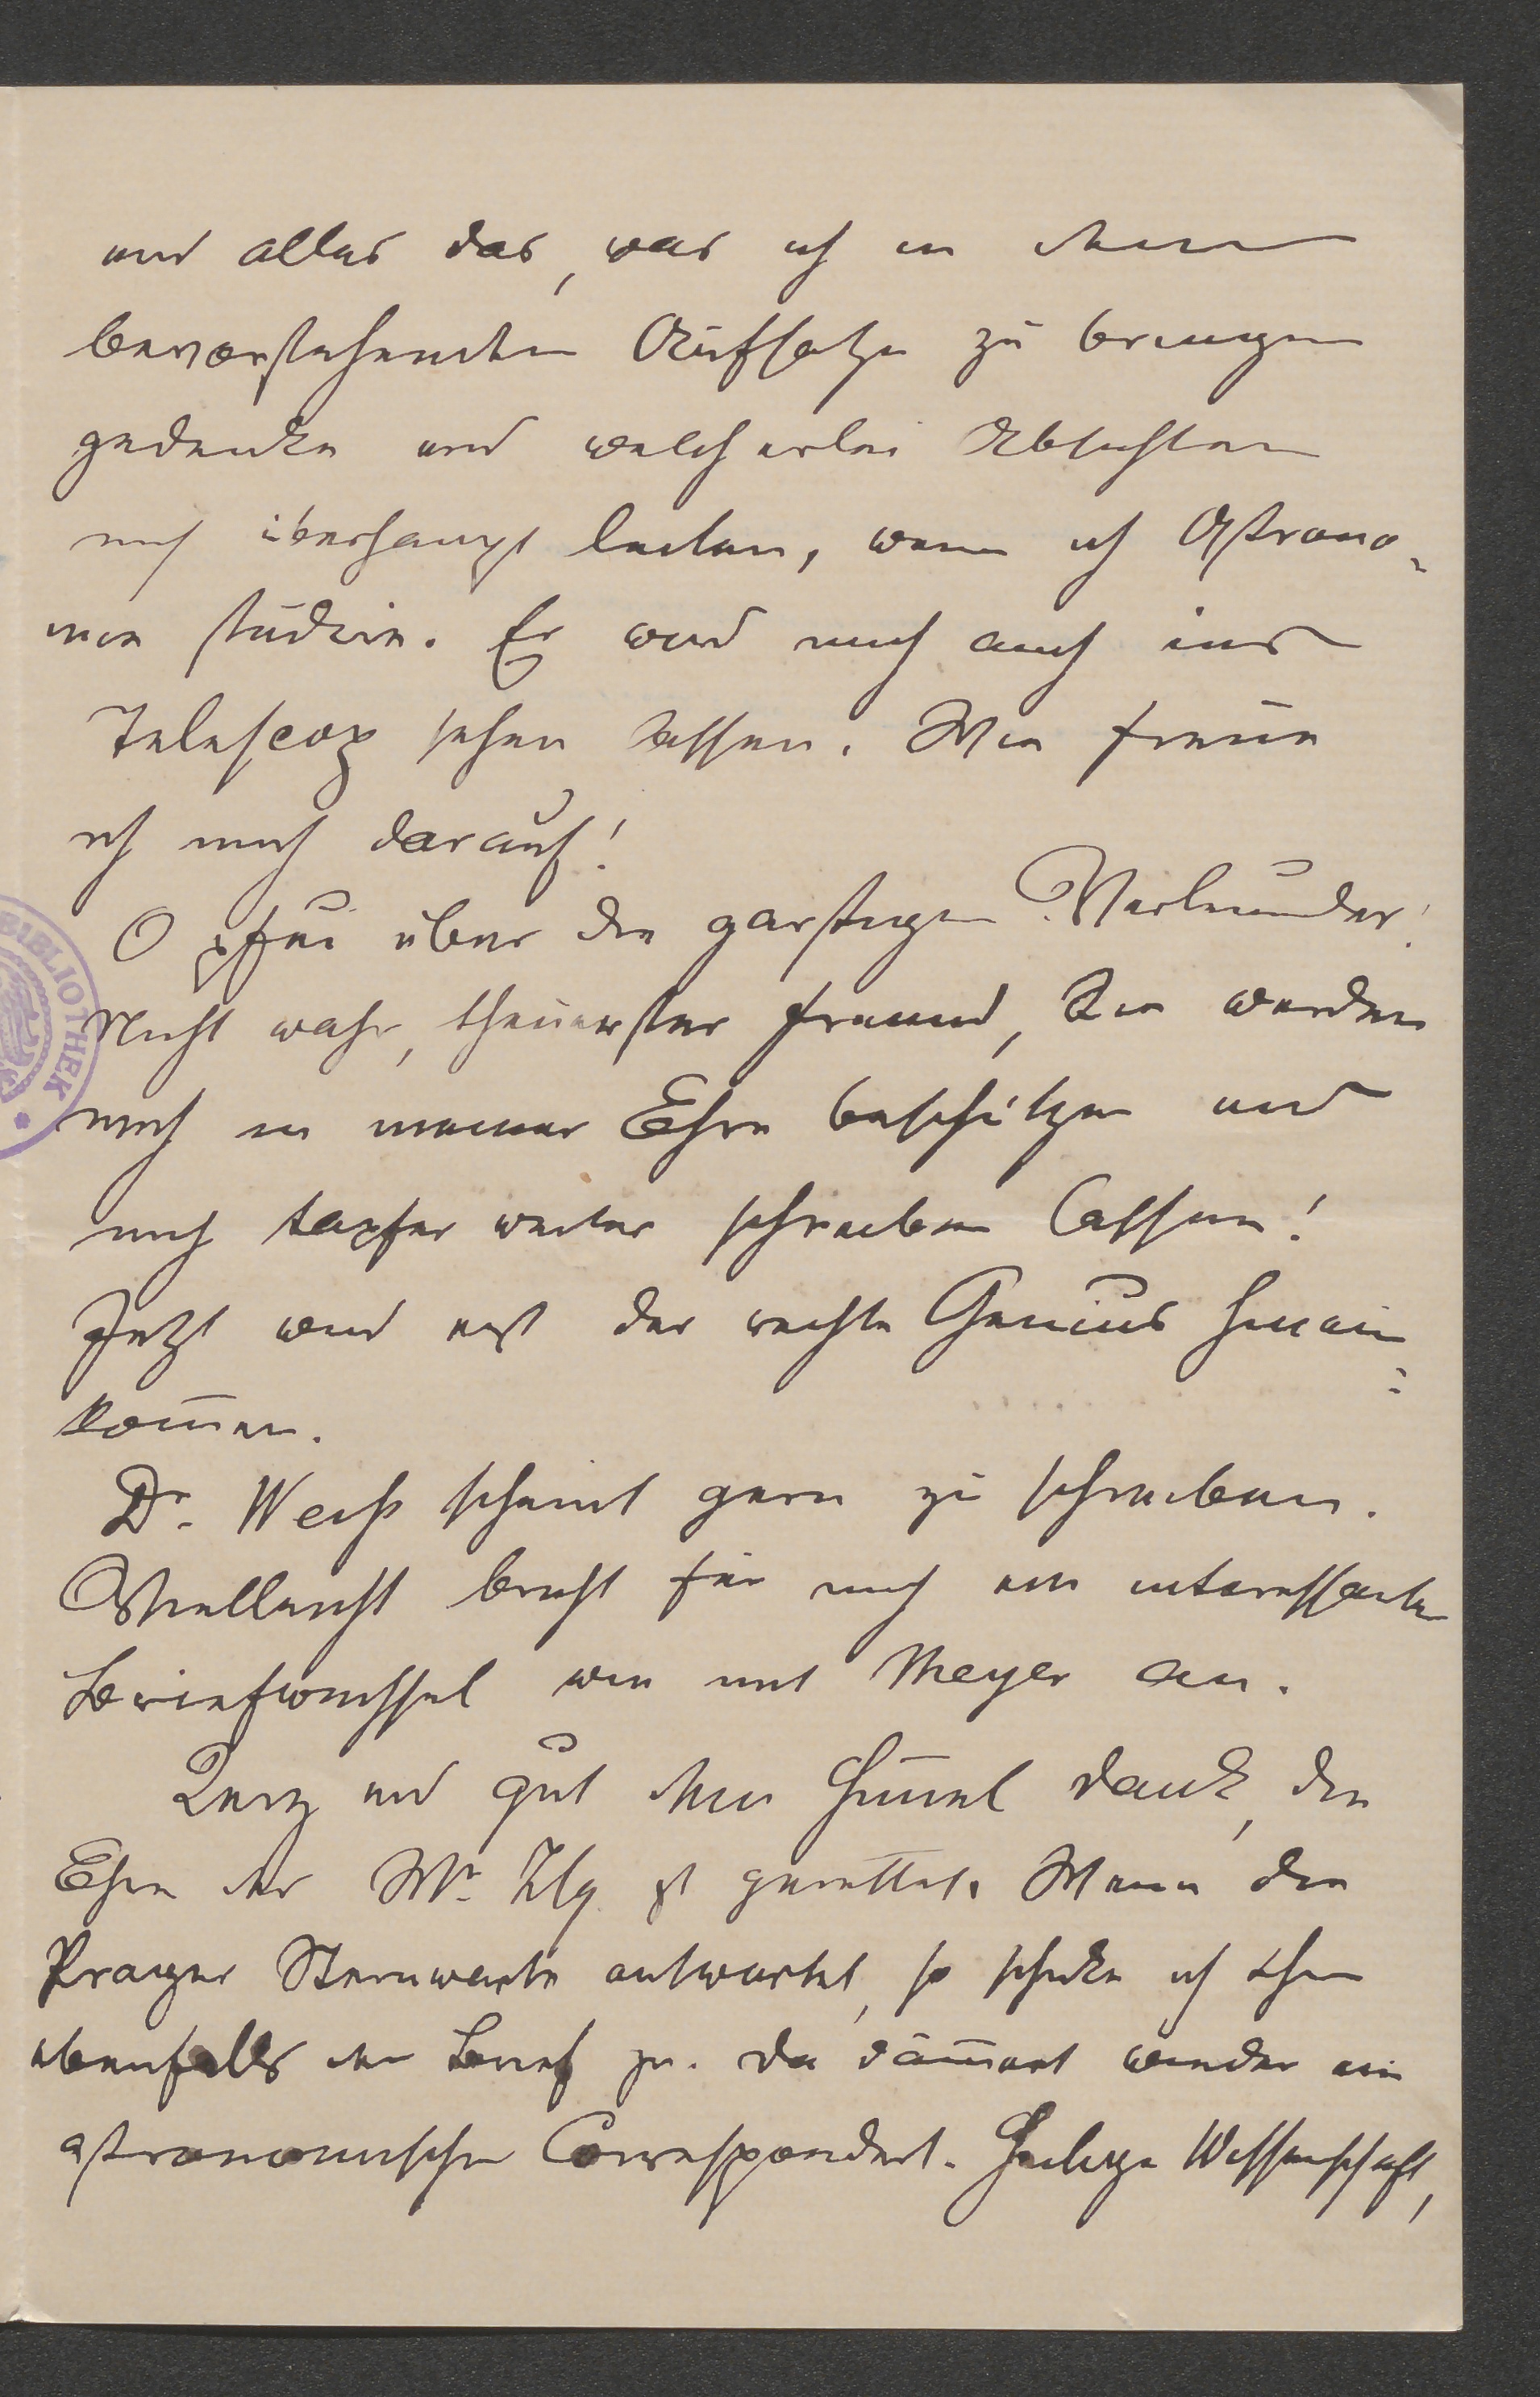 und alles das, was ich in dem
bevorstehenden Aufsatze zu bringen
gedenke und welcherlei Absichten
mich überhaupt leiten, wenn ich Astrono-
mie studire. Er wird mich auch ins
Telescop sehen lassen. Wie freue
ich mich darauf!
O pfui über die garstigen Verleumder!
Nicht wahr, theuerster Freund, Sie werden
mich in meiner Ehre beschützen und
mich tapfer weiter schreiben lassen!
Jetzt wird erst der rechte Genius hinein-
kom̅en.
Dr. Weiß scheint gern zu schreiben.
Vielleicht bricht für mich ein interessanter
Briefwechsel wie mit Meyer an.
Kurz und gut dem Him̅el dank, die
Ehre der Wr. Ztg. ist gerettet. Wenn die
Prager Sternwarte antwortet, so schicke ich Ihnen
ebenfalls den Brief zu. Da däm̅ert wieder ein
astronomischer Correspondent. Heilige Wissenschaft,
BIBLIOTHEK